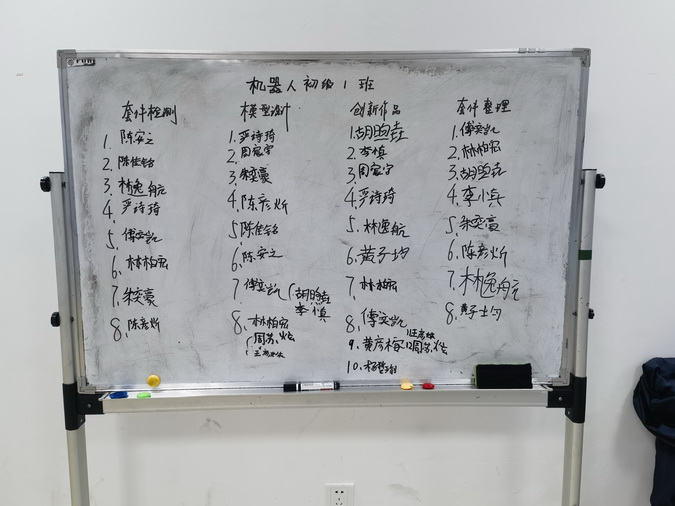 机器人初级1班
套件检测
1、陈安之
2、陈佳铭
3、林逸航
4、严诗琦
5、傅奕凯
6、林柏宏
7、朱奕豪
8、陈彦炘
模型设计
1、严诗琦
2、周宸宇
3、朱奕豪
4、陈彦炘
5、陈佳铭
6、陈安之
7、傅奕凯(胡昀垚
李慎
8、林柏宏
创新作品
1、胡昀垚
2、李慎
3、周宸宇
4、严诗琦
5、林逸航
6、黄子均
7、林柏宏
8、傅奕凯
9、黄彦
10、杨
套件整理
1、傅奕凯
2、林柏宏
3、胡昀垚
4、李慎
5、朱奕豪
6、陈彦炘
7、林逸航
8、黄子均